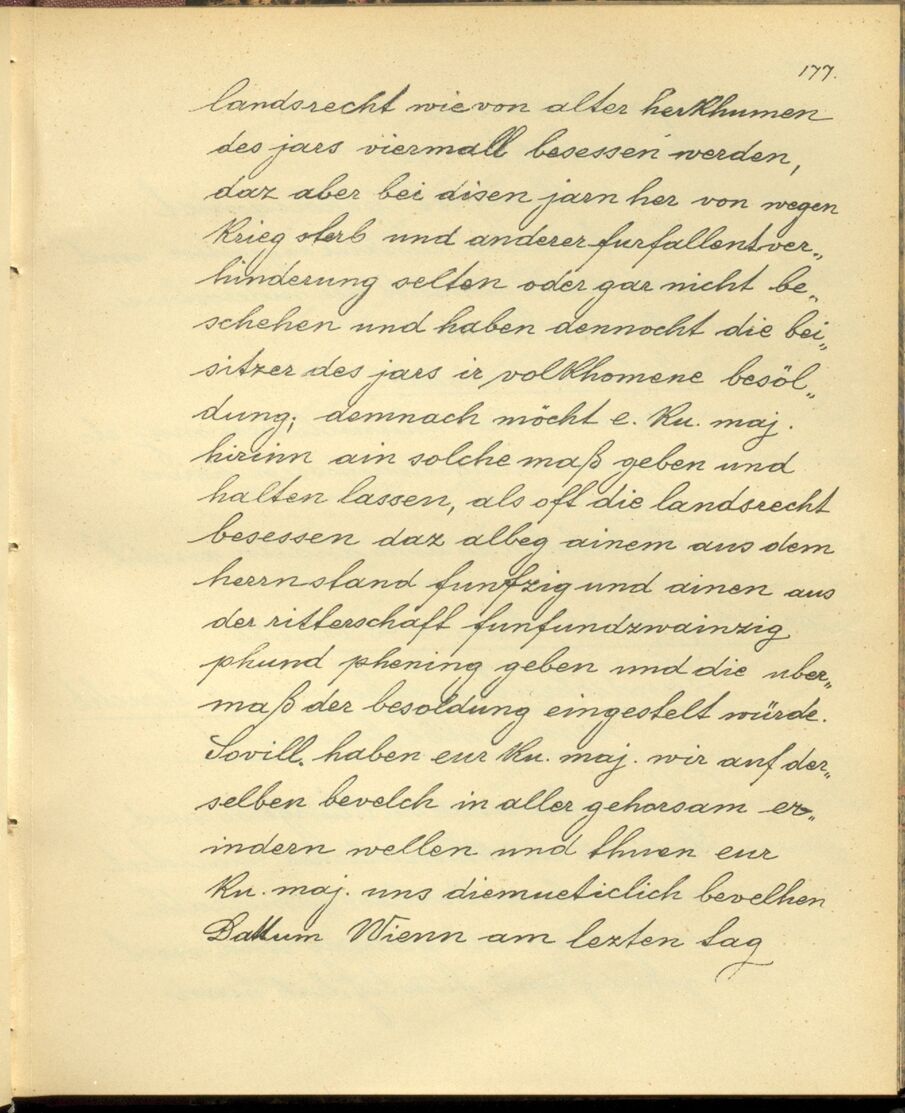 177.
landsrecht wie von alter herkhumen
des jars viermall besessen werden,
daz aber bei disen jarn her von wegen
krieg sterb und anderer furfallent ver„
hinderung selten oder gar nicht be„
schehen und haben dennocht die bei„
sitzer des jars ir volkhomene besöl„
dung; demnach möcht e. ku. maj.
hirinn ain solche maß geben und
halten lassen, als oft die landsrecht
besessen daz albeg ainem aus dem
herrnstand funfzig und ainen aus
der ritterschaft funfundzwainzig
phund phening geben und die uber„
maß der besoldung eingestelt würde.
Sovill haben eur ku. maj. wir auf der„
selben bevelch in aller gehorsam er„
indern wellen und thuen eur
ku. maj. uns diemueticlich bevelhen
Dattum Wienn am lezten tag